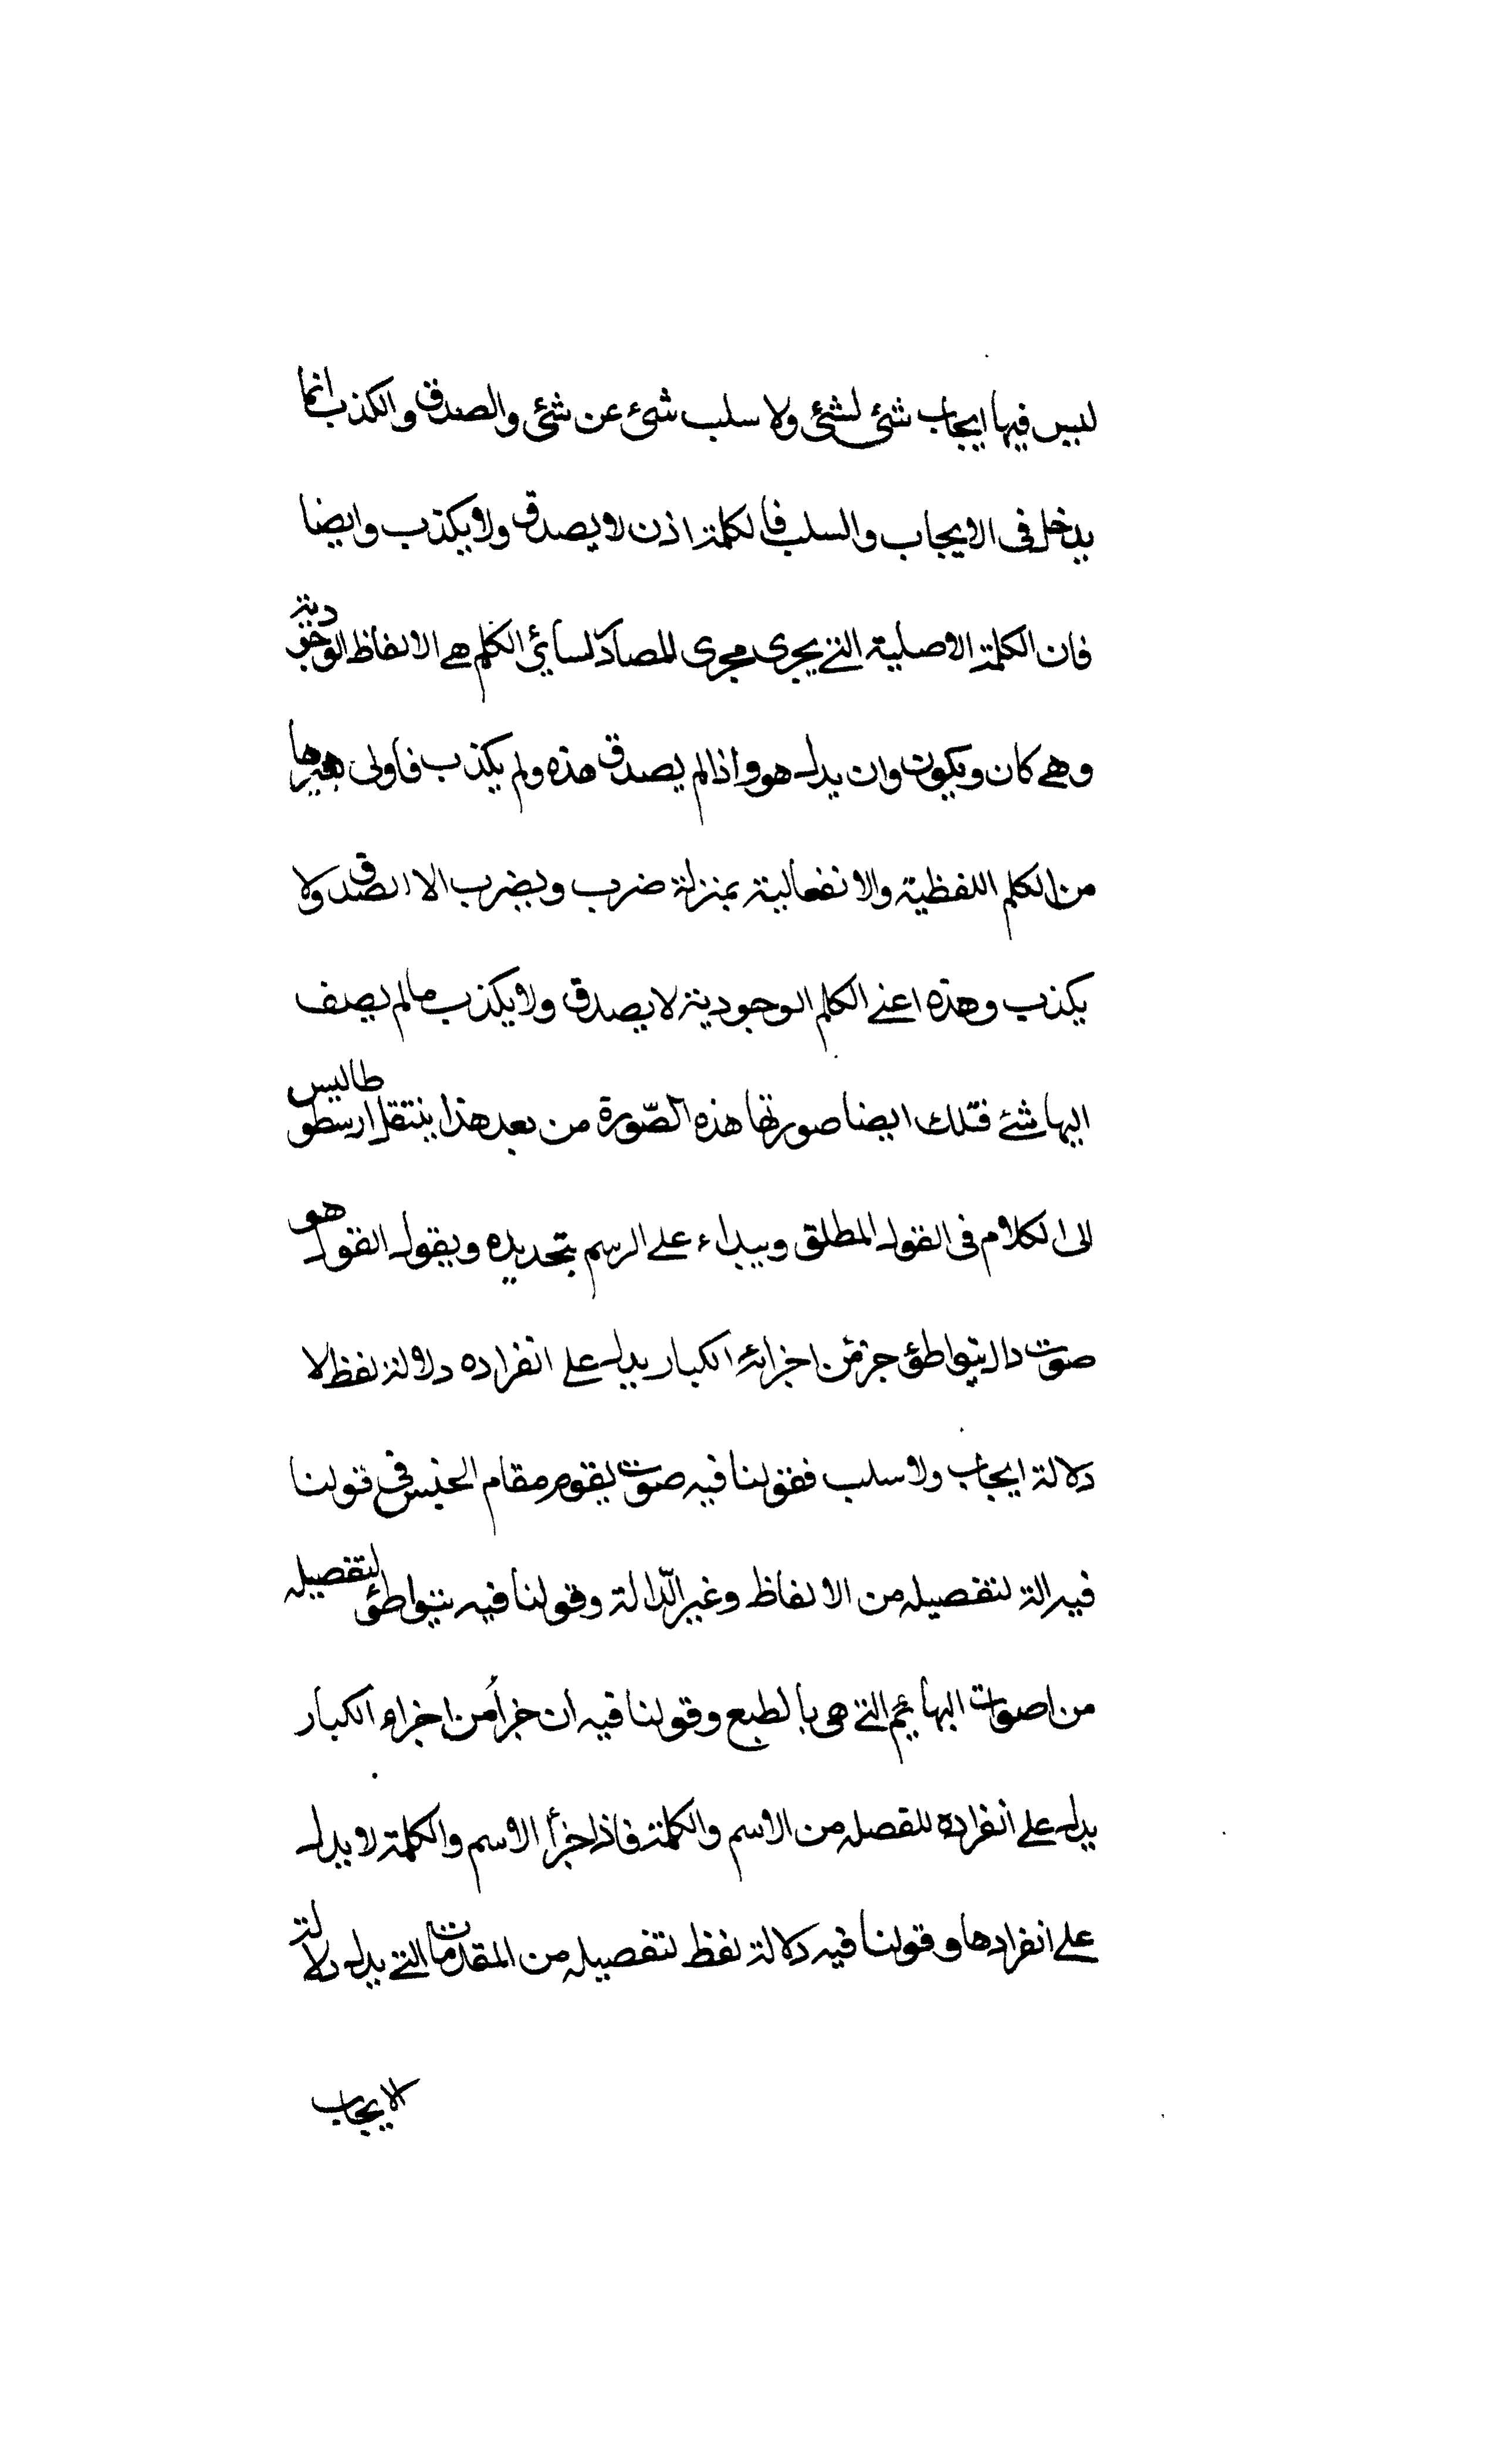 ليس فيها ايجاب شئ لشئ ولا سلب شئ عن شئ والصدق والكذب انما
يدخل فى الايجاب والسلب فالكلمة اذن لا يصدق ولا يكذب وايضا
فان الكلمة الاصلية التے يجرى مجرى المصادر لسائر الكلم هے الالفاظ الوجودية
وهے كان ويكون وان يدل هو واذا لم يصدق هذه ولم يكذب فاولى بغيرها
من الكلم اللفظية والانفعالية بمنزلة ضرب ويضرب الا الصدق ولا
يكذب وهذه اعنے الكلم الوجودية لا يصدق ولا يكذب مالم يضف
اليها شئے فتلك ايضا صورتها هذه الصّورة من بعد هذا ينتقل ارسطوطاليس
الى الكلام فى القول المطلق ويبداء علے الرسم بتحديده ويقول القول هو
صوت دال بتواطئ جزء من اجزائه الكبار يدل علے انفراده دلالة لفظ لا
دلالة ايجاب ولا سلب فقولنا فيه صوت يقوم مقام الجنس فى قولنا
فيه الة لتفصيله من الالفاظ وغير الدّالة وقولنا فيه بتواطئ لتفصيله
من اصوات البهائم التے هى بالطبع وقولنا فيه ان جزأ من اجزاء الكبار
يدل علے انفراده للفصل من الاسم والكلمة فاذا جزأ الاسم والكلمة لا يدل
علے انفرادها وقولنا فيه دلالة لفظ لتفصيله من المقدمات التے يدل دلالة
الايجاب